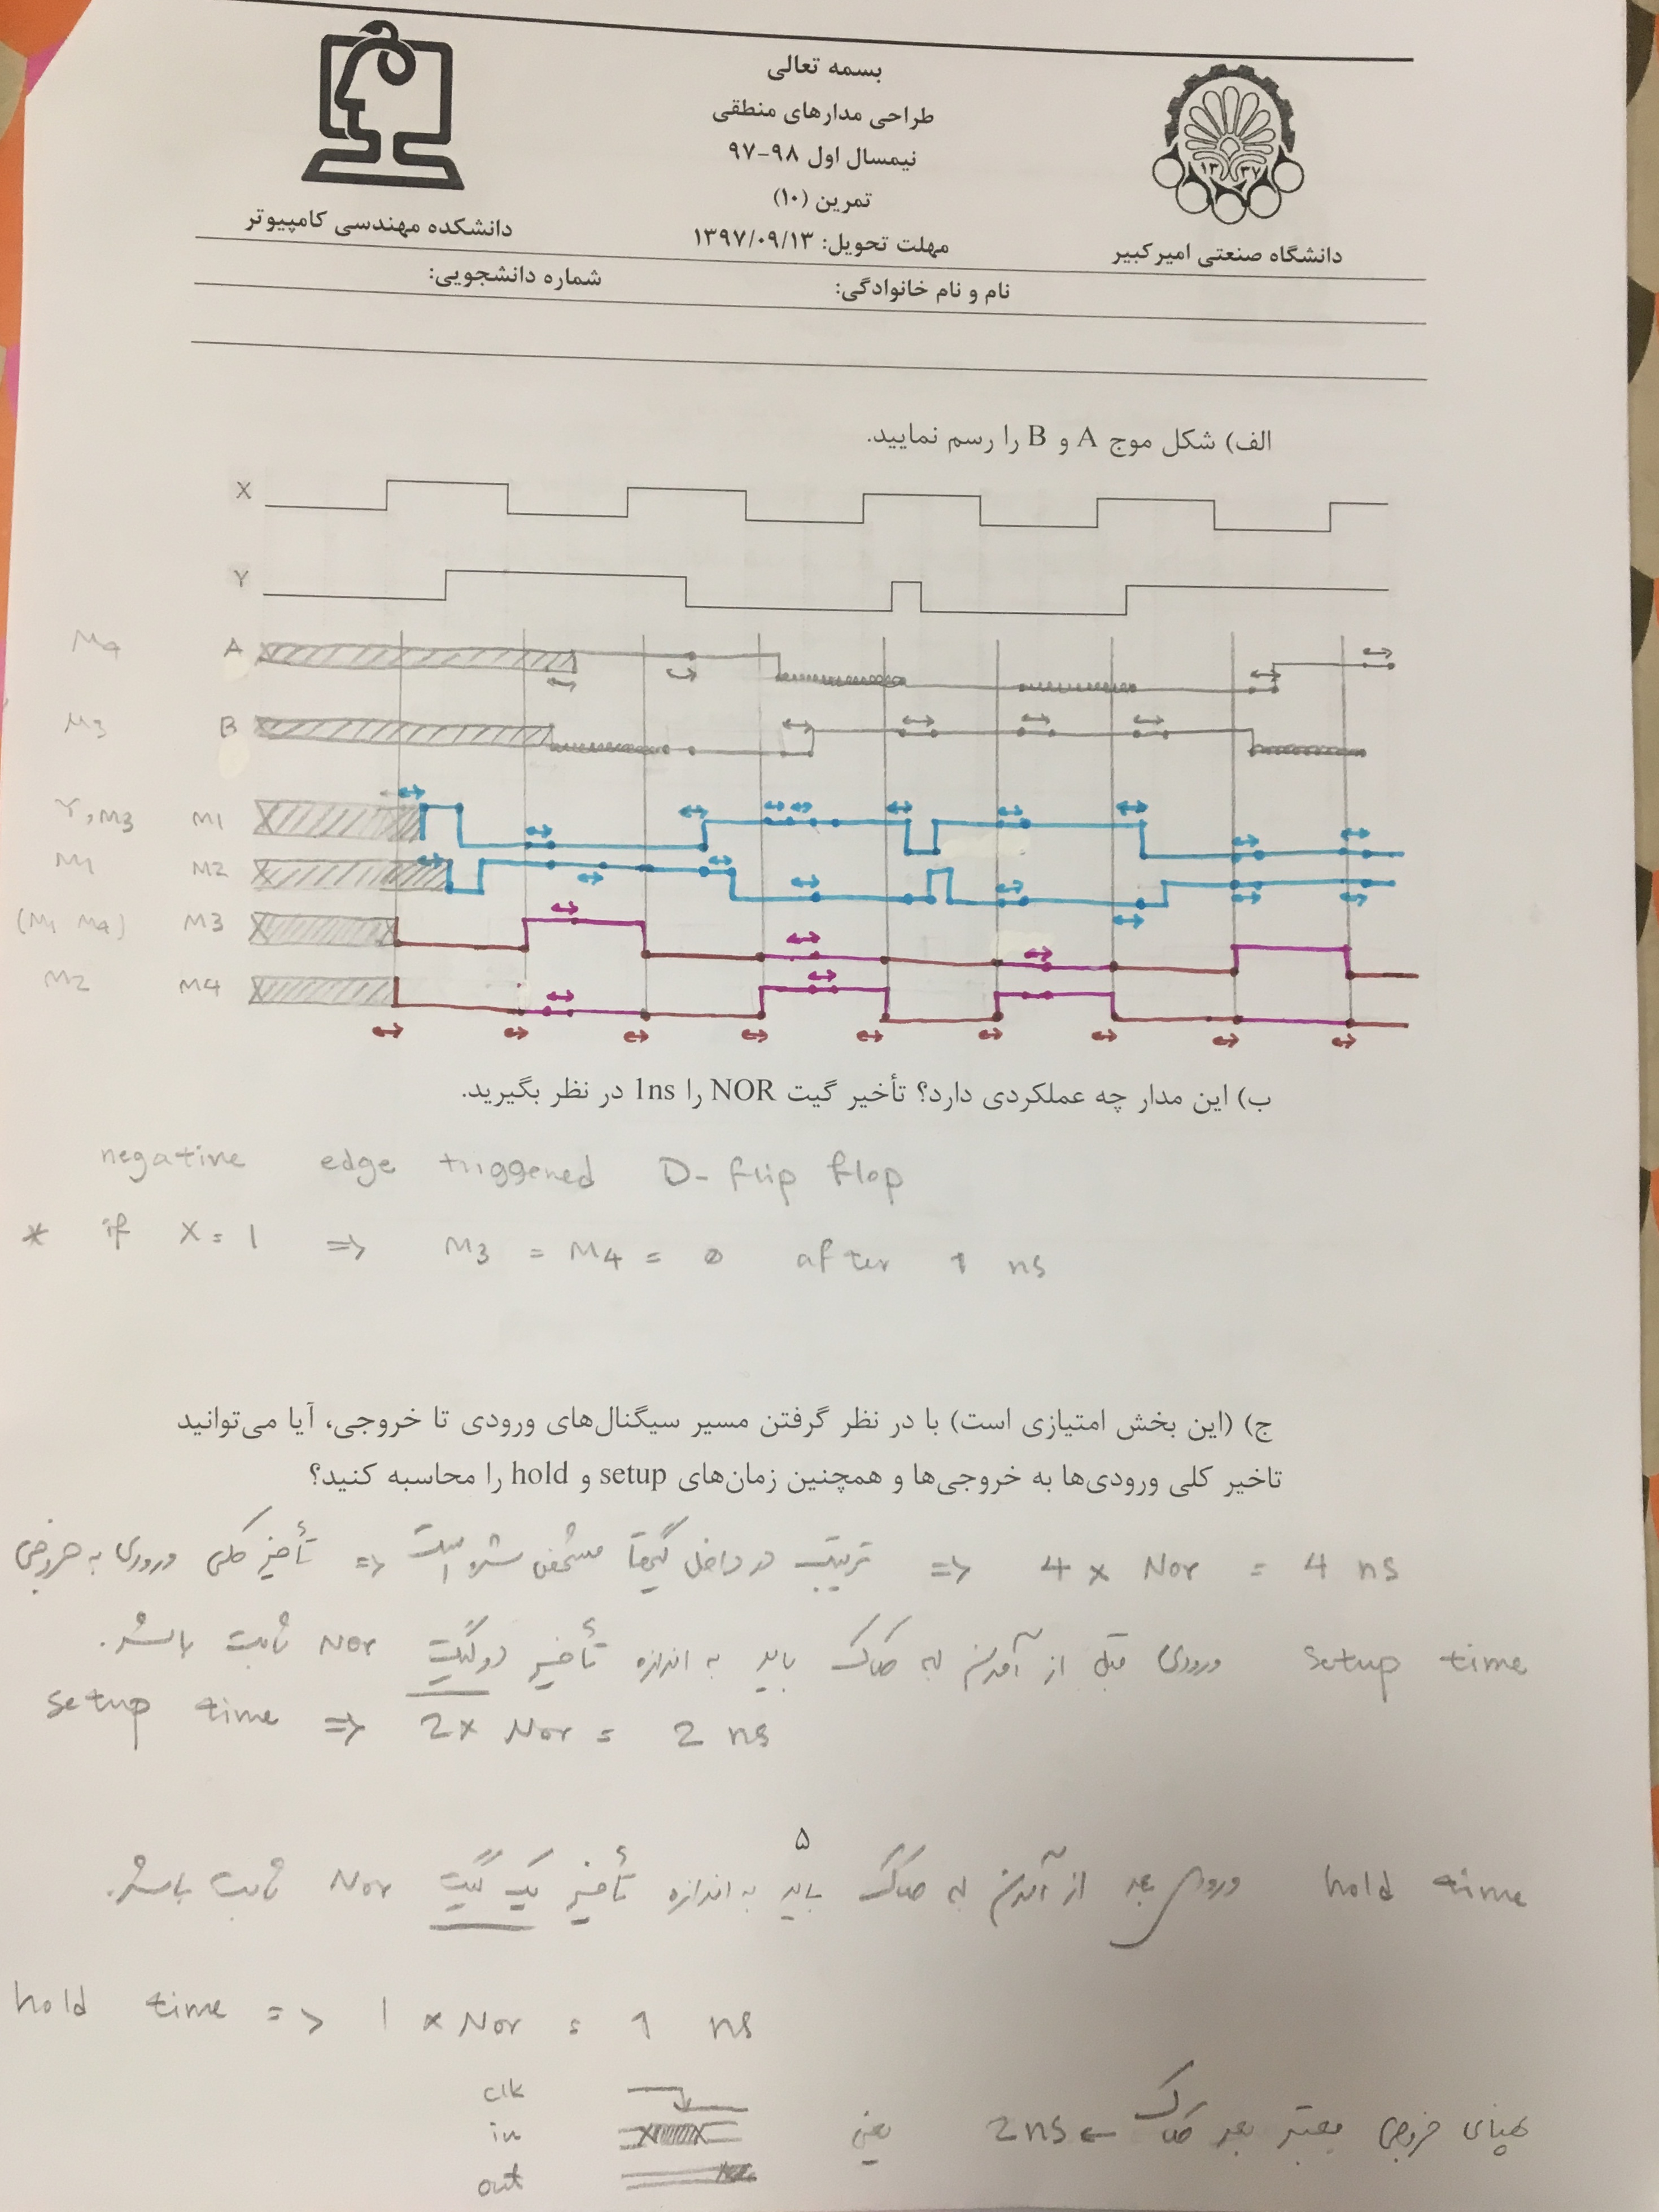 بسمه تعالی
طراحی مدارهای منطقی
نیمسال اول ۹۸-۹۷
تمرین (۱۰)
مهلت تحویل: ۱۳۹۷/۰۹/۱۳
۱۳ ۳۷
دانشگاه صنعتی امیرکبیر
دانشکده مهندسی کامپیوتر
نام و نام خانوادگی: شماره دانشجویی:
الف) شکل موج A و B را رسم نمایید.
X
Y
M4 A
M3 B
Y, M3 M1
M1 M2
(M1 M4) M3
M2 M4
ب) این مدار چه عملکردی دارد؟ تأخیر گیت NOR را 1ns در نظر بگیرید.
negative edge triggered D- flip flop
* if X = 1 => M3 = M4 = 0 after 1 ns
ج) (این بخش امتیازی است) با در نظر گرفتن مسیر سیگنال‌های ورودی تا خروجی، آیا می‌توانید
تاخیر کلی ورودی‌ها به خروجی‌ها و همچنین زمان‌های setup و hold را محاسبه کنید؟
ترتیب در داخل گیتها مشخص شده است => تأخیر کلی ورودی به خروجی => 4 x Nor = 4 ns
setup time ورودی قبل از آمدن لبه کلاک باید به اندازه تأخیر دو گیت Nor ثابت باشد.
setup time => 2x Nor = 2 ns
۵
hold time ورودی بعد از آمدن لبه کلاک باید به اندازه تأخیر یک گیت Nor ثابت باشد.
hold time => 1 x Nor = 1 ns
خروجی معتبر بعد کلاک → 2ns ← یعنی
clk
in
out